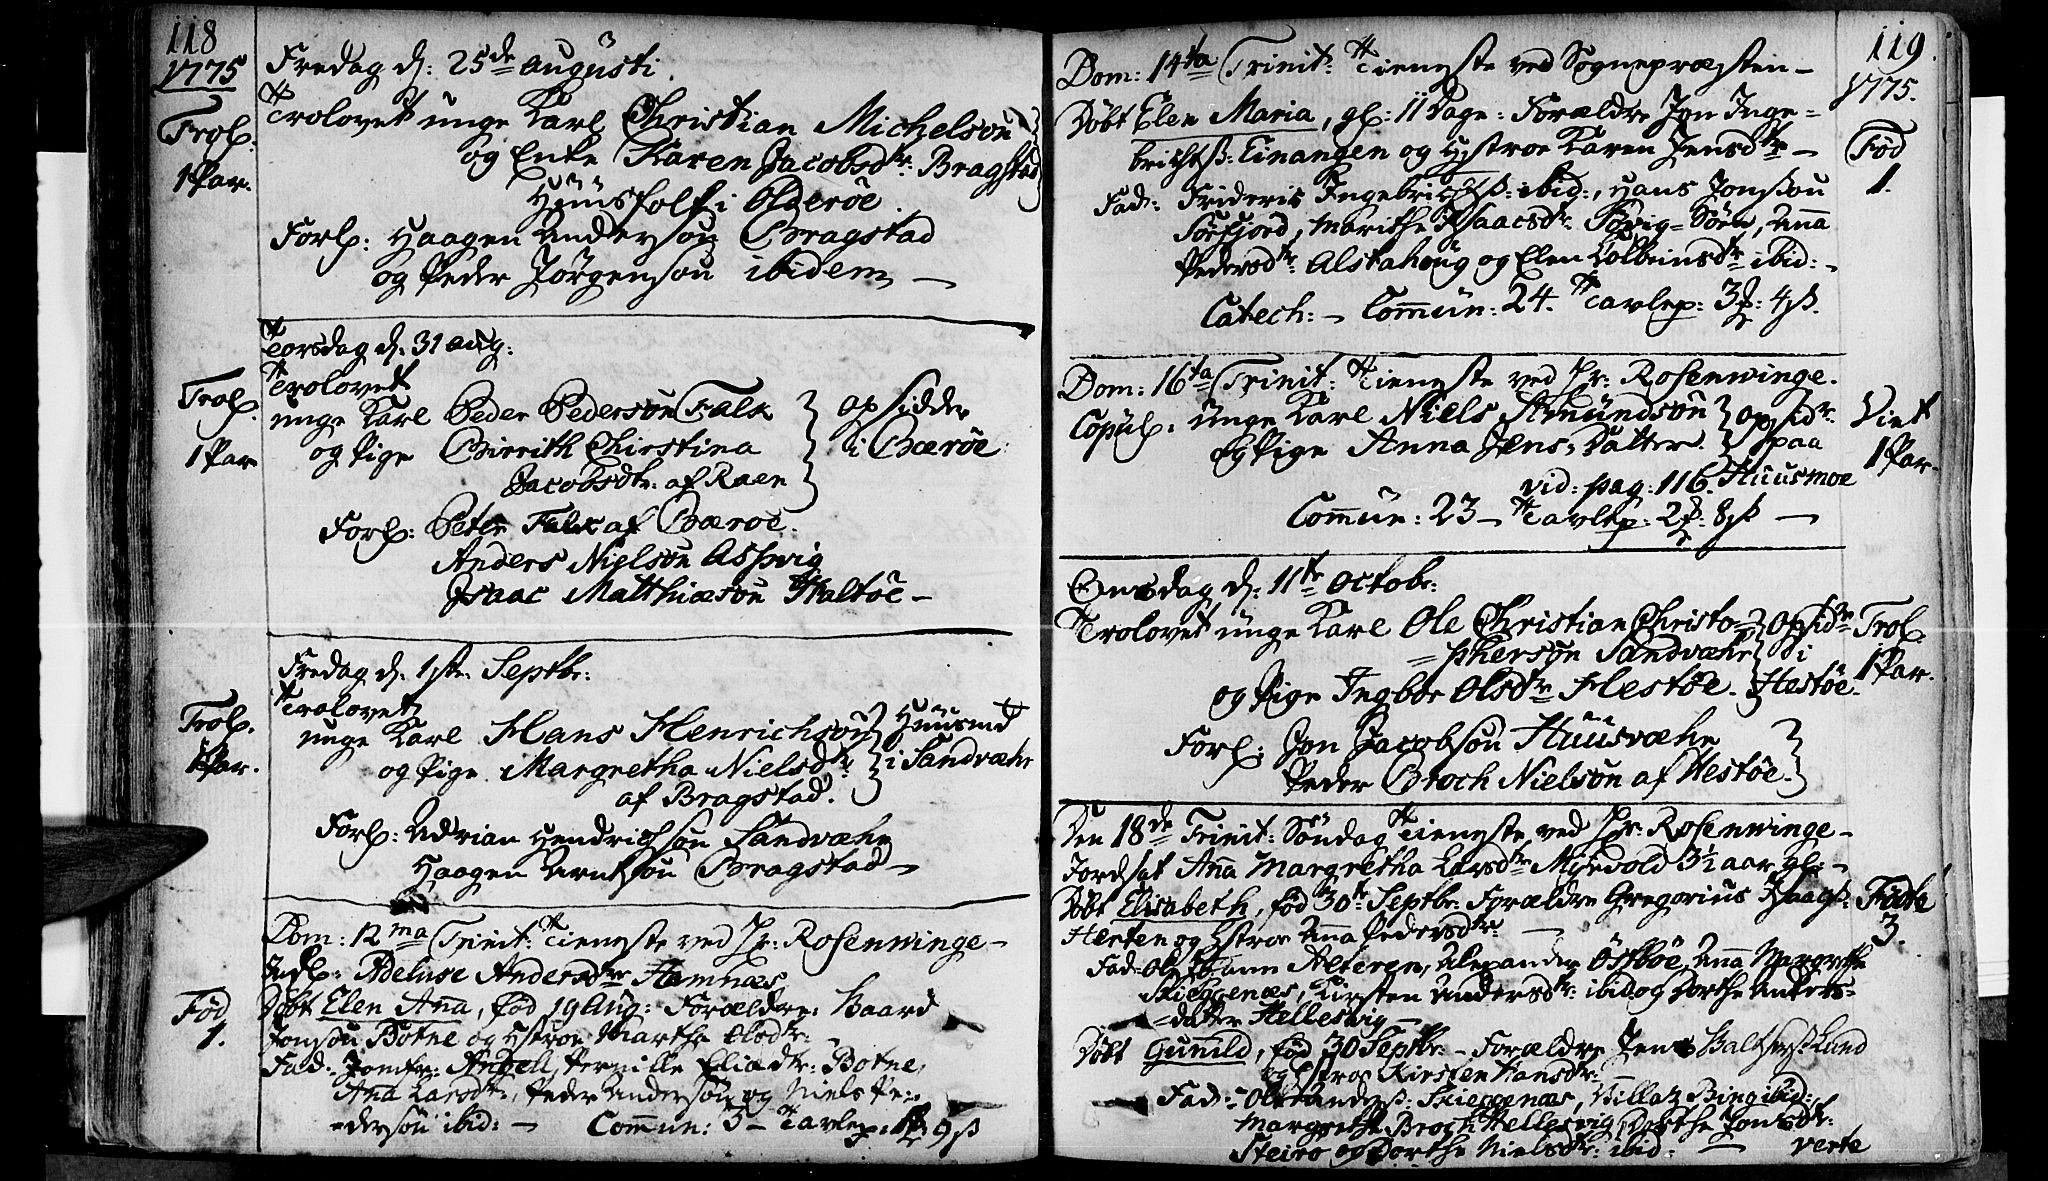 118
1775
Fredag d: 25de Augusti.
Trol: 1 Par.
Trolovet unge Karl Christian Michelsøn
og Enke Karen Jacobsdtr: Bragstad
Huusfolk i Olderöe.
Forl: Haagen Andersøn Bragstad
og Peder Jörgensøn ibidem —
Torsdag d: 31 Aug:
Trol: 1 Par
Trolovet
unge Karl Peder Pedersøn Falk
og Pige Birrith Christina
Jacobsdtr: af Raen
opsidder
i Bærøe
Forl: Peter Falk af Bærøe.
Anders Nielsøn Asvig
Isaac Matthiæsøn Haltöe —
Fredag d: 1ste Septbr:
Trol. 1 Par.
Trolovet
unge Karl Hans Henrichsøn
og Pige Margretha Nielsdtr
af Bragstad.
Huusmd
i Sandvæhr
Forl: Adrian Hendrichsøn Sandvæhr
Haagen Arntsøn Bragstad —
Dom: 12ma Trinit: Tieneste ved Hr: Rosenwinge —
Indl: Adeluse Andersdtr Hemnæs
Fød 1.
Døbt Elen Ana, fød 19 Aug: Forældre: Baard
Jonsøn Botne og Hstroe Marthe Olsdtr: —
Fad: Jomfr: Angell, Pernille Eliædtr: Botne,
Ana Larsdtr:, Peder Andersøn og Niels Pe-
dersøn ibid: — Commun: 3 — Tavlep: 9ß
119.
1775.
Dom: 14ta Trinit: Tieneste ved Sognepræsten —
Fød 1.
Døbt Elen Maria, gl: 11 Dage: Forældre Jon Inge=
brichtß: Einangen og Hstroe Karen Jensdtr —
Fad: Frideris Ingebrichtß: ibid:, Hans Jonsøn
Sörfjord, Marithe Isaacsdtr: Søvig=Sören, Ana
Pedersdtr: Alstahoug og Elen Kolbeinsdtr ibid: —
Catech: — Commun: 24. Tavlep: 3 4ß.
Dom: 16ta Trinit: Tieneste ved Hr: Rosenwinge.
Viet 1 Par.
Copul: Unge Karl Niels Amundsøn
og Pige Anna Jens-Datter.
opsidr:
paa
Huusmoe
vid: pag: 116.
Commun: 23 — Tavlep: 2 8ß —
Onsdag d: 11te Octobr:
Trol. 1 Par.
Trolovet unge Karl Ole Christian Christo=
=phersøn Sandvæhr
og Pige Ingbor Olsdtr Hestöe.
Opsidr
i
Hestöe.
Forl: Jon Jacobsøn Huusvæhr
Peder Broch Nielsøn af Hestöe.
Den 18de Trinit: Søndag Tieneste ved Hr: Rosenwinge —
Jordsat Ana Margretha Larsdtr Myrvold 3½ aar gl: —
Fødte 3.
Døbt Elisabeth, fød 30te Septbr: Forældre Gregorius Haagß:
Herten og Hstroe Ana Pedersdtr: —
Fad: Ole Alteren, Alexander Östböe, Ana Margrethe
Skieggenæs, Kirsten Andersdtr: ibid og Dorthe Anders=
=datter Hellesvig —
Døbt Gunnild, fød 30 Septbr: — Forældre Jens Baltzerß: Lund
og Hstroe Kirsten Hansdtr:
Fad: Ole Anderß: Skieggenæs, Villatz Bing ibid:
Margrethe Broch Hellesvig, Dorthe Jonsdtr:
Steiro og Dorthe Nielsdtr: ibid: —
verte